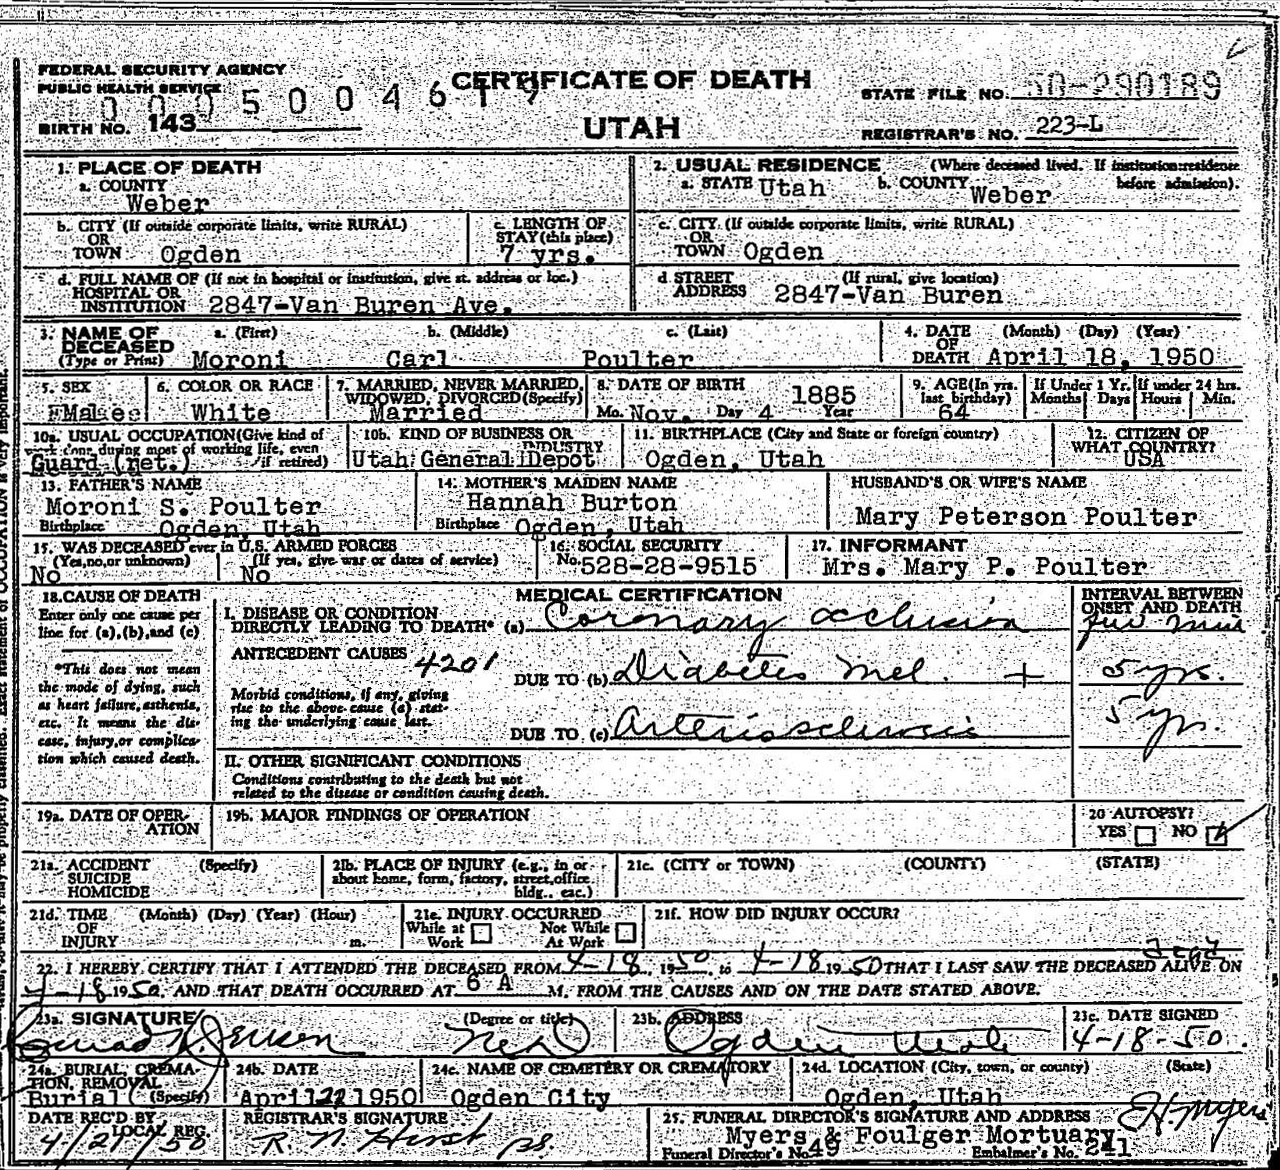 FEDERAL SECURITY AGENCY
PUBLIC HEALTH SERVICE
CERTIFICATE OF DEATH
STATE FILE NO. 50-290189
0005004619
BIRTH NO. 143
UTAH
REGISTRAR'S NO. 223-L
1. PLACE OF DEATH
a. COUNTY
Weber
2. USUAL RESIDENCE (Where deceased lived. If institution:residence before admission).
a. STATE Utah b. COUNTY Weber
b. CITY (If outside corporate limits, write RURAL)
OR
TOWN Ogden
c. LENGTH OF
STAY (this place)
7 yrs.
c. CITY (If outside corporate limits, write RURAL)
OR
TOWN Ogden
d. FULL NAME OF (If not in hospital or institution, give st. address or loc.)
HOSPITAL OR
INSTITUTION 2847-Van Buren Ave.
d STREET (If rural, give location)
ADDRESS 2847-Van Buren
3. NAME OF a. (First) b. (Middle) c. (Last)
DECEASED
(Type or Print) Moroni Carl Poulter
4. DATE (Month) (Day) (Year)
OF
DEATH April 18, 1950
5. SEX
Male
6. COLOR OR RACE
White
7. MARRIED, NEVER MARRIED,
WIDOWED, DIVORCED (Specify)
Married
8. DATE OF BIRTH 1885
Mo. Nov. Day 4 Year
9. AGE (In yrs.
last birthday)
64
If Under 1 Yr.
Months Days
If under 24 hrs.
Hours Min.
10a. USUAL OCCUPATION (Give kind of
work done during most of working life, even
if retired)
Guard (ret.)
10b. KIND OF BUSINESS OR
INDUSTRY
Utah General Depot
11. BIRTHPLACE (City and State or foreign country)
Ogden, Utah
12. CITIZEN OF
WHAT COUNTRY?
USA
13. FATHER'S NAME
Moroni S. Poulter
Birthplace Ogden, Utah
14. MOTHER'S MAIDEN NAME
Hannah Burton
Birthplace Ogden, Utah
HUSBAND'S OR WIFE'S NAME
Mary Peterson Poulter
15. WAS DECEASED ever in U.S. ARMED FORCES
(Yes,no,or unknown) (If yes, give war or dates of service)
No No
16. SOCIAL SECURITY
No. 528-28-9515
17. INFORMANT
Mrs. Mary P. Poulter
18. CAUSE OF DEATH
Enter only one cause per
line for (a),(b),and (c)
*This does not mean
the mode of dying, such
as heart failure, asthenia,
etc. It means the dis-
ease, injury,or complica-
tion which caused death.
MEDICAL CERTIFICATION
INTERVAL BETWEEN
ONSET AND DEATH
I. DISEASE OR CONDITION
DIRECTLY LEADING TO DEATH* (a) Coronary occlusion few min
ANTECEDENT CAUSES 4201
DUE TO (b) Diabetes Mel. + 5 yrs.
Morbid conditions, if any, giving
rise to the above cause (a) stat-
ing the underlying cause last.
DUE TO (c) Arteriosclerosis 5 yrs.
II. OTHER SIGNIFICANT CONDITIONS
Conditions contributing to the death but not
related to the disease or condition causing death.
19a. DATE OF OPER-
ATION
19b. MAJOR FINDINGS OF OPERATION
20 AUTOPSY?
YES NO
21a. ACCIDENT (Specify)
SUICIDE
HOMICIDE
21b. PLACE OF INJURY (e.g., in or
about home, form, factory, street,office
bldg., eac.)
21c. (CITY or TOWN) (COUNTY) (STATE)
21d. TIME (Month) (Day) (Year) (Hour)
OF
INJURY m.
21e. INJURY OCCURRED
While at Not While
Work At Work
21f. HOW DID INJURY OCCUR?
dead
22. I HEREBY CERTIFY THAT I ATTENDED THE DECEASED FROM 4-18, 1950, to 4-18 1950 THAT I LAST SAW THE DECEASED ALIVE ON
4-18 1950, AND THAT DEATH OCCURRED AT 6 A M. FROM THE CAUSES AND ON THE DATE STATED ABOVE.
23a. SIGNATURE (Degree or title)
Conrad H. Jensen MD
23b. ADDRESS
Ogden Utah
23c. DATE SIGNED
4-18-50.
24a. BURIAL, CREMA-
TION, REMOVAL
(Specify)
Burial
24b. DATE
April 22 1950
24c. NAME OF CEMETERY OR CREMATORY
Ogden City
24d. LOCATION (City, town, or county) (State)
Ogden, Utah
DATE REC'D BY
LOCAL REG.
REGISTRAR'S SIGNATURE
25. FUNERAL DIRECTOR'S SIGNATURE AND ADDRESS
Myers & Foulger Mortuary
Funeral Director's No. 49 Embalmer's No. 241